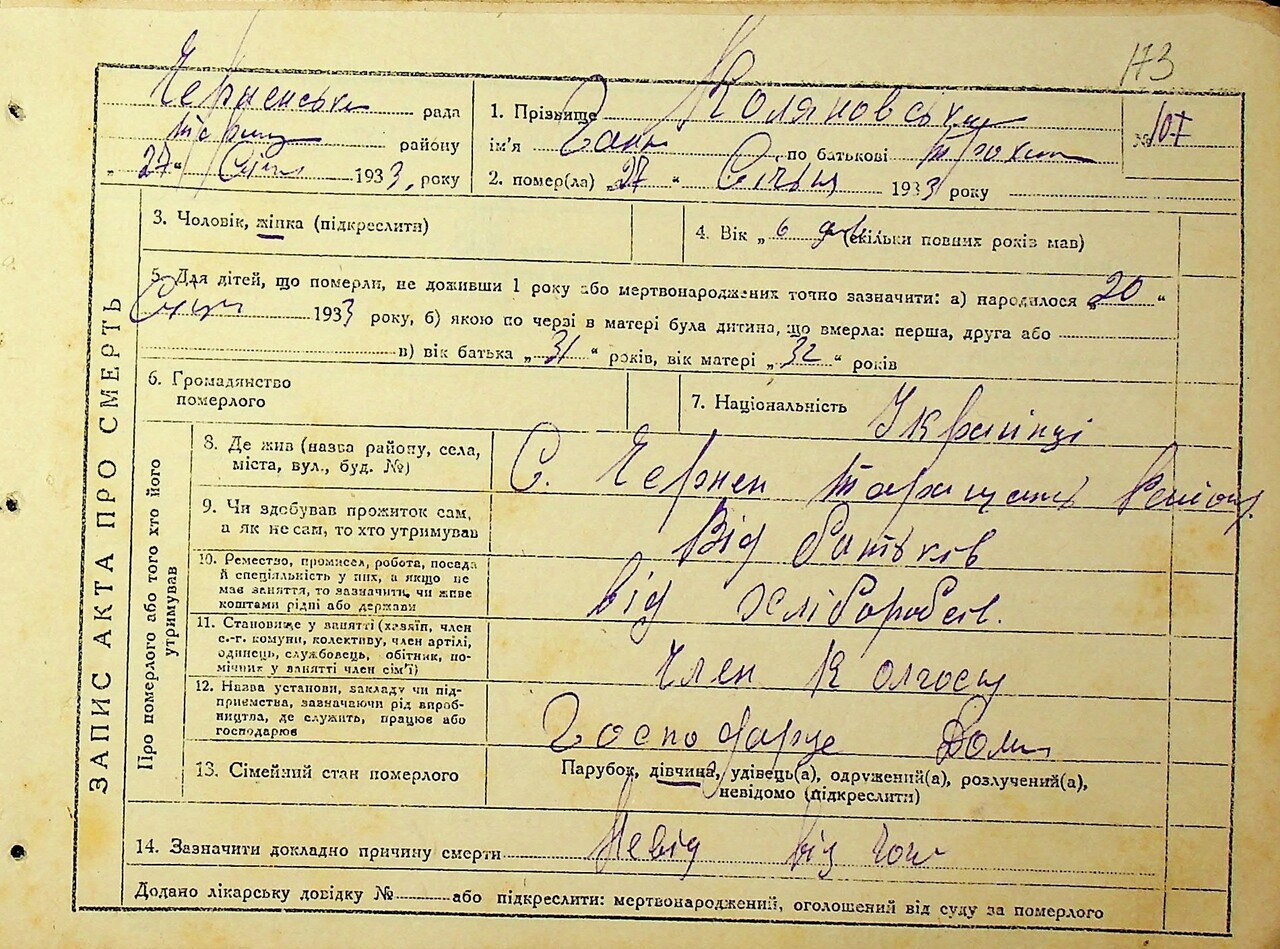 173
Черненська рада
району
„27“ Січня 1933, року
1. Прізвище Коляновська
ім'я Ганна по батькові Трохим
2. помер(ла) „27“ Січня 1933 року
№ 107
3. Чоловік, жінка (підкреслити)
4. Вік „6 дн. (скільки повних років мав)
5. Для дітей, що померли, не доживши 1 року або мертвонароджених точно зазначити: а) народилося „20“
Січня 1933 року, б) якою по черзі в матері була дитина, що вмерла: перша, друга або
в) вік батька „31“ років, вік матері „32“ років
6. Громадянство
померлого
7. Національність Українці
ЗАПИС АКТА ПРО СМЕРТЬ
Про померлого або того хто його
утримував
8. Де жив (назва району, села,
міста, вул., буд. №)
С. Чернен Таращанс Району
9. Чи здобував прожиток сам,
а як не сам, то хто утримував
Від батьків
10. Ремество, промисел, робота, посада
й спеціяльність у них, а якщо не
має заняття, то зазначити, чи живе
коштами рідні або держави
від хліборобств.
11. Становище у занятті (хазяїн, член
с.-г. комуни, колективу, член артілі,
одинець, службовець, обітник, по-
мічник у занятті член сім'ї)
Член Колгоспу
12. Назва установи, закладу чи під-
приємства, зазначаючи рід вироб-
ництва, де служить, працює або
господарює
Господарує Дома
13. Сімейний стан померлого
Парубок, дівчина, удівець(а), одружений(а), розлучений(а),
невідомо (підкреслити)
14. Зазначити докладно причину смерти Невід від чого
Додано лікарську довідку № або підкреслити: мертвонароджений, оголошений від суду за померлого